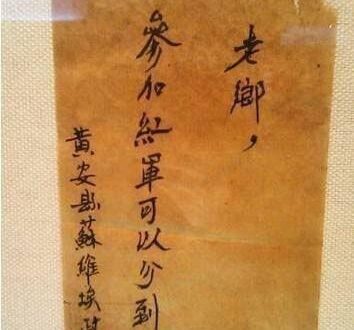 老鄉，
參加紅軍可以分到
黃安縣蘇維埃